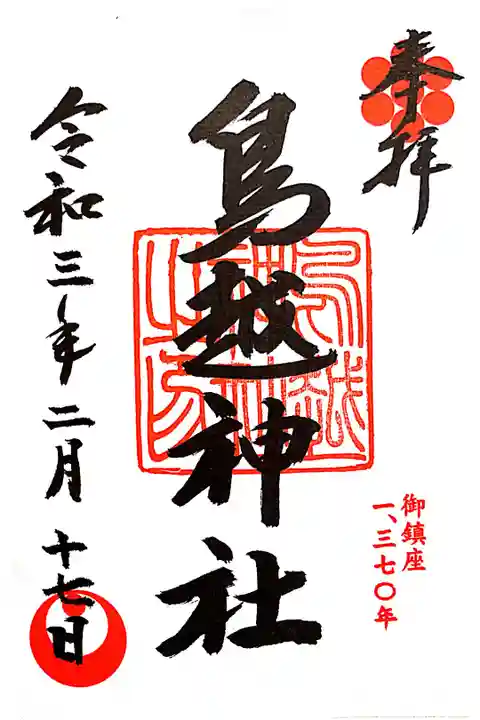 奉拝
御鎮座
一、三七〇年
鳥越神社
令和三年二月十七日